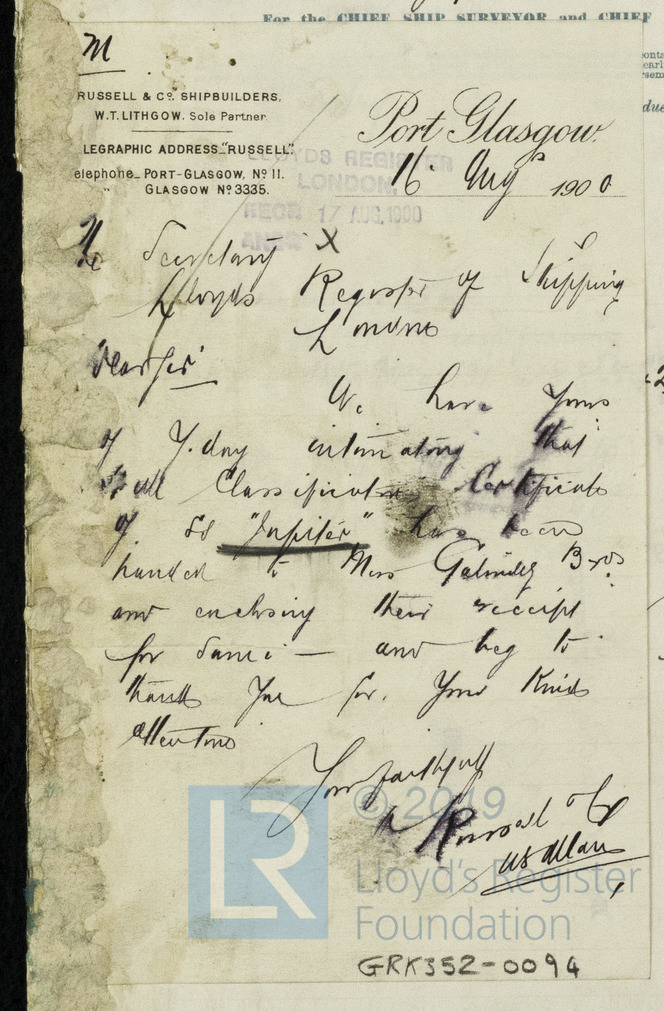 For the CHIEF SHIP SURVEYOR and CHIEF
M
RUSSELL & Co. SHIPBUILDERS,
W.T. LITHGOW. Sole Partner
LEGRAPHIC ADDRESS "RUSSELL".
elephone_ PORT-GLASGOW, No 11.
" GLASGOW No 3335.
Port Glasgow.
16 Augt 1900
LLOYDS REGISTER
LONDON,
RECD 17 AUG. 1900
ANSD X
The Secretary
Lloyds Register of Shipping
London
Dear Sir
We have yours
of Y.day intimating that
Classification Certificate
of SS "Jupiter" have been
handed to Messrs Bros
and enclosing their receipt
for same: — and beg to
thank you for your kind
attention
Yours faithfully
Russell & Co
GRK352-0094
© 2019
LR
Lloyd's Register
Foundation